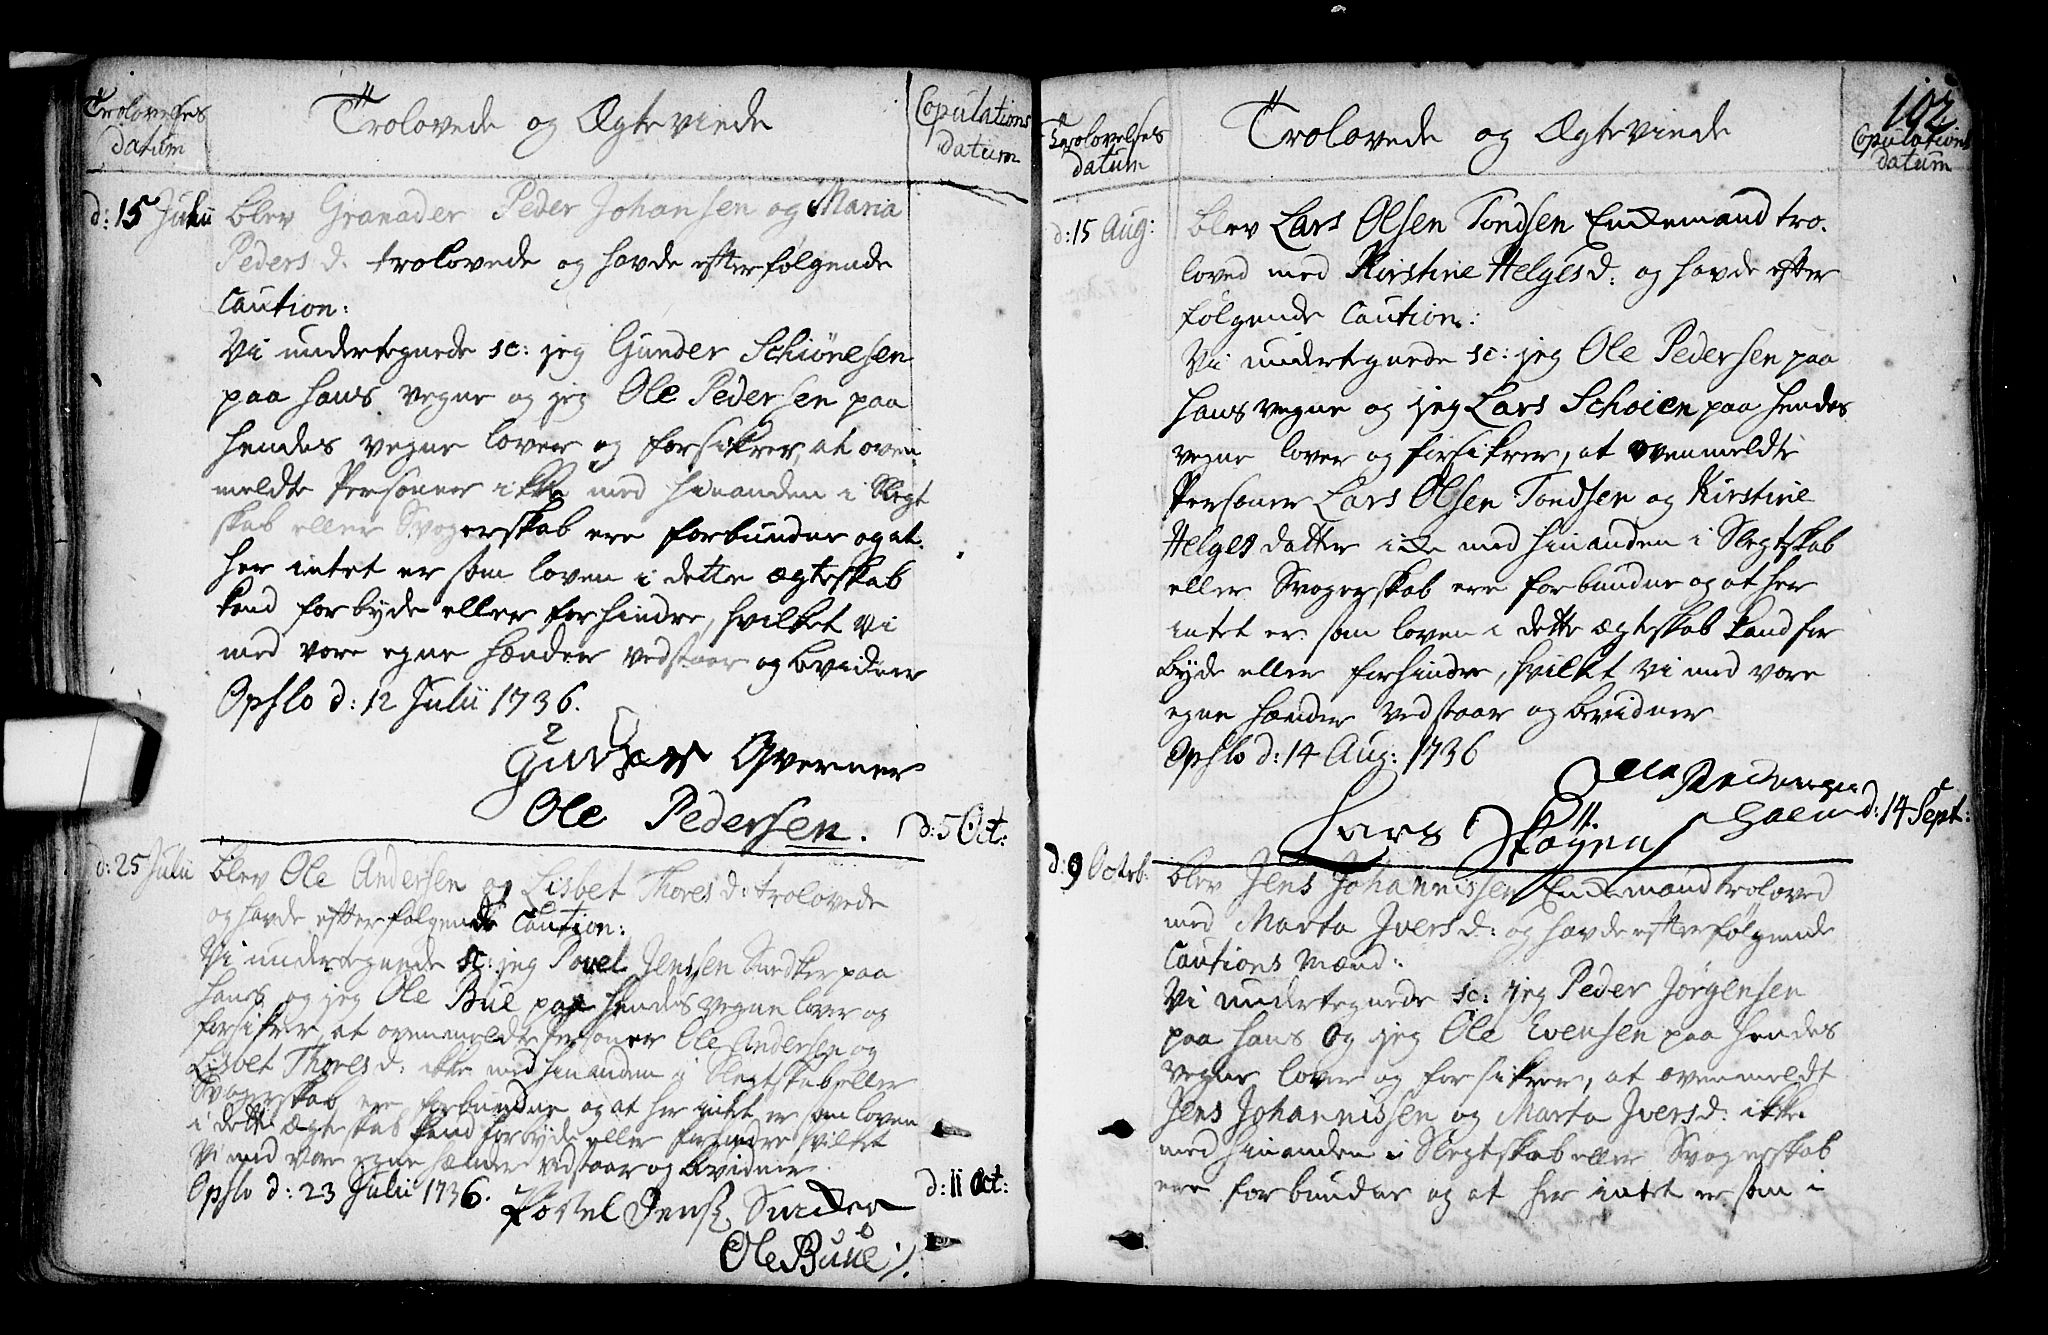 Trolovelses
datum
Trolovede og Ægteviede
Copulations
datum
d: 15 Julii
blev Granader Peder Johansen og Maria
Peders d. trolovede og havde efterfølgende
Caution:
Vi undertegnede sc: jeg Gunder Schiönesen
paa hans vegne og jeg Ole Pedersen paa
hendes vegne lover og forsikrer, at oven
meldte Personer ikke med hinanden i Slegt
skab eller Svogerskab ere forbundne og at
her intet er som loven i dette ægteskab
kand forbyde eller forhindre, hvilket vi
med vore egne hænder vedstaar og bevidner
Opslo d: 12 Julii 1736.
Ole Pedersen.
d: 5 Oct:
d: 25 Julii
blev Ole Andersen og Lisbet Thores d: trolovede
og havde efterfølgende Caution:
Vi undertegnede sc: jeg Povel Jenssen Snedker paa
hans og jeg Ole Bue paa hendes vegne lover og
forsikrer at ovenmeldte Personer Ole Andersen og
Lisbet Thores d: ikke med hinanden i Slegtskab eller
Svogerskab ere forbundne og at her intet er som loven
i dette ægteskab kand forbyde eller forhindre hvilket
vi med vore egne hænder vedstaar og bevidner.
Opslo d: 23 Julii 1736.
Ole Buue
d: 11 Oct:
102
Trolovelses
datum
Trolovede og Ægteviede
Copulations
datum
d: 15 Aug:
blev Lars Olsen Tondsen Enckemand tro.
loved med Kirstine Helgesd: og havde efter
følgende Caution:
Vi undertegnede sc: jeg Ole Pedersen paa
hans vegne og jeg Lars Schøien paa hendes
vegne lover og forsikrer, at ovenmeldte
Personer Lars Olsen Tondsen og Kirstine
Helges datter icke med hinanden i Slegtskab
eller Svogerskab ere forbundne og at her
intet er som loven i dette ægteskab kand for
byde eller forhindre, hvilket vi med vore
egne hænder vedstaar og bevidner
Opslo d: 14 Aug: 1736
Lars Sköyen
d: 14 Sept:
d: 9 Octob:
blev Jens Johannissen Enckemand troloved
med Marta Jversd: og havde efterfølgende
Cautions Mænd:
Vi undertegnede sc: jeg Peder Jørgensen
paa hans og jeg Ole Evensen paa hendes
vegne lover og forsikrer, at ovenmeldt
Jens Johannissen og Marta Jversd: ikke
med hinanden i Slegtskab eller Svogerskab
ere forbundne og at her intet er som i